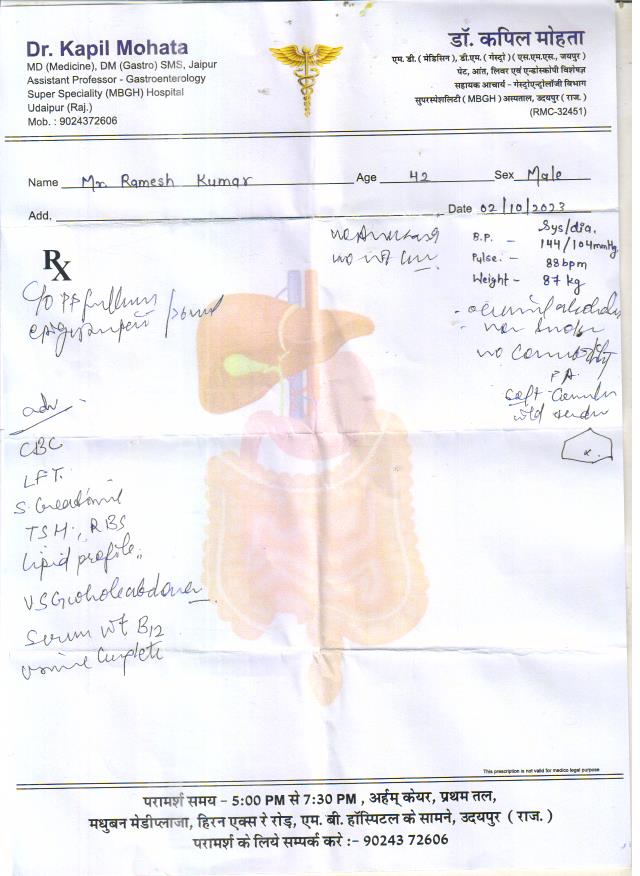 Dr. Kapil Mohata
MD (Medicine), DM (Gastro) SMS, Jaipur
Assistant Professor - Gastroenterology
Super Speciality (MBGH) Hospital
Udaipur (Raj.)
Mob. : 9024372606
डॉ. कपिल मोहता
एम. डी. ( मेडिसिन ), डी.एम. ( गेस्ट्रो ) ( एस.एम.एस., जयपुर )
पेट, आंत, लिवर एवं एन्डोस्कोपी विशेषज्ञ
सहायक आचार्य - गेस्ट्रोएन्ट्रोलॉजी विभाग
सुपरस्पेशलिटी ( MBGH ) अस्पताल, उदयपुर ( राज. )
(RMC-32451)
Name Mr. Ramesh Kumar Age 42 Sex Male
Add. Date 02/10/2023
Sys/dia.
B.P. - 144/104 mmHg.
Pulse. - 88 bpm
Weight - 87 kg
Rx
C/o
no
P/A
Soft
adv
CBC
LFT.
S. Creatinine
TSH., RBS
Lipid profile
USG whole abdomen
Serum Vit B12
urine Complete
This prescription is not valid for medico legal purpose
परामर्श समय – 5:00 PM से 7:30 PM , अर्हम् केयर, प्रथम तल,
मधुबन मेडीप्लाजा, हिरन एक्स रे रोड़, एम. बी. हॉस्पिटल के सामने, उदयपुर ( राज. )
परामर्श के लिये सम्पर्क करे :– 90243 72606